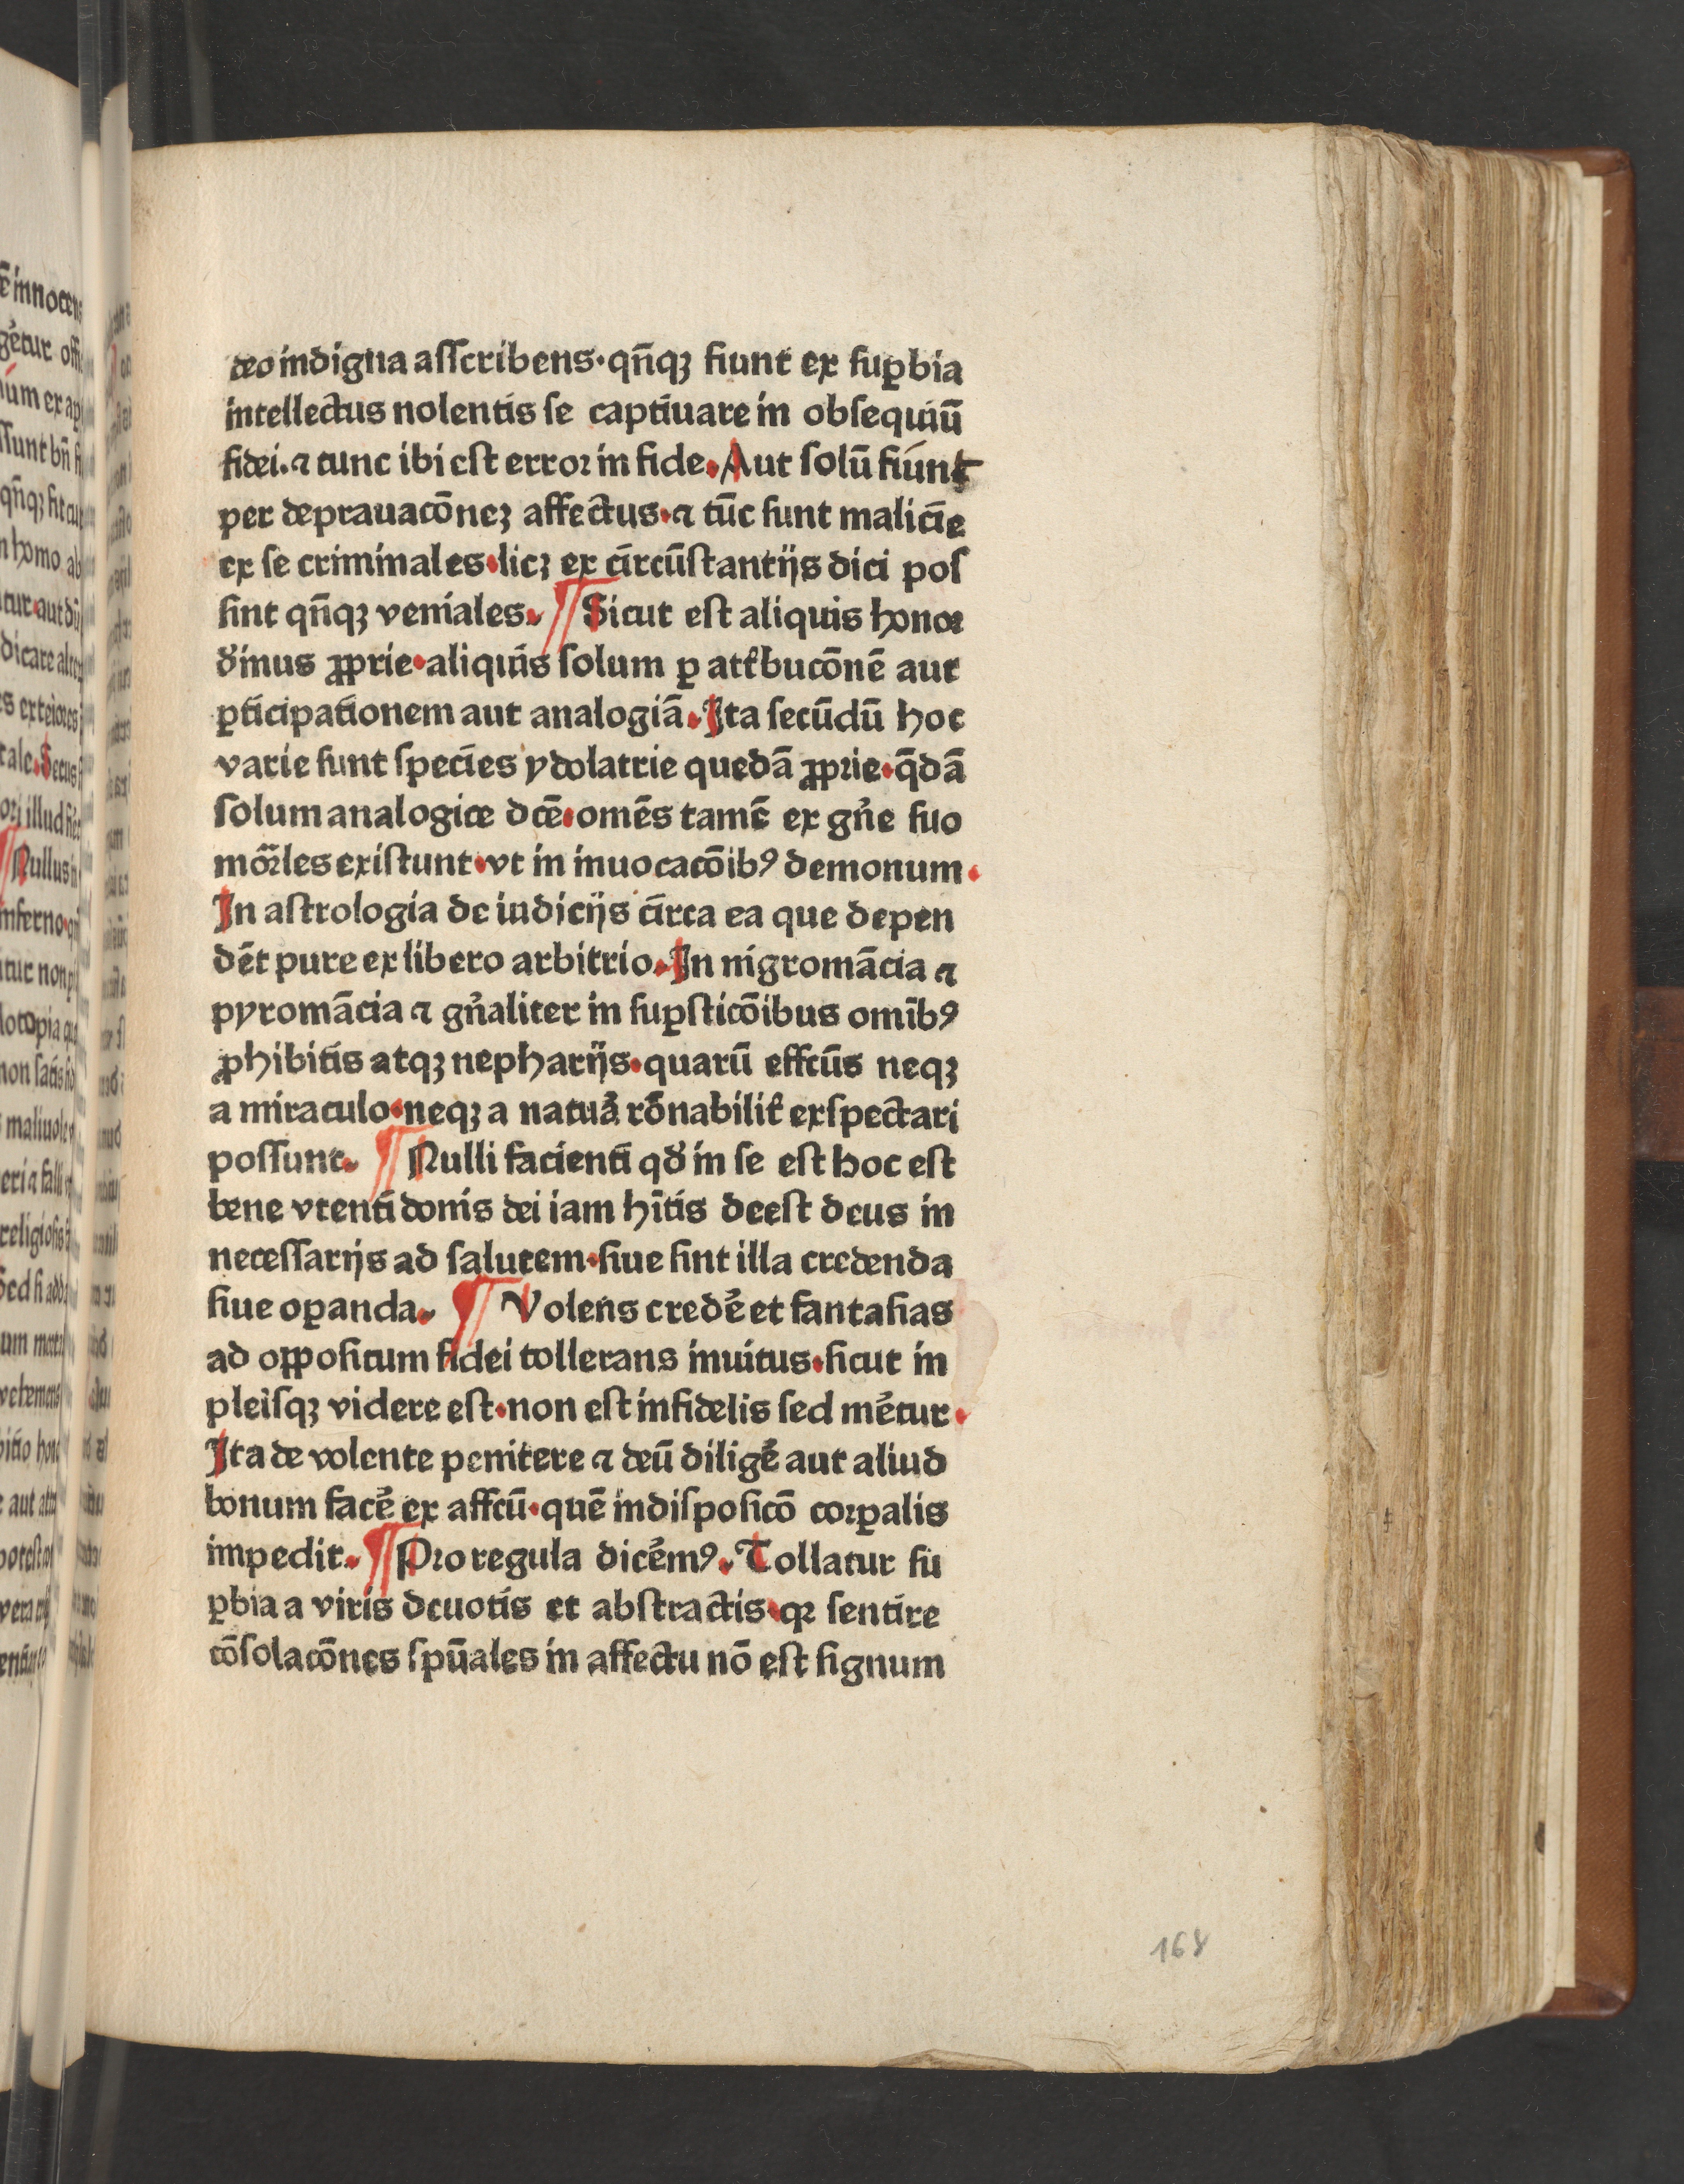 deo indigna aſſcribens·qn̄qꝫ fiunt ex ſuꝑbia
intellectus nolentis ſe captiuare in obſequiū
fidei.⁊ tunc ibi eſt erroꝛ in fide.Aut ſolū fiunt
per deprauacōneꝫ affectus.⁊ tūc ſunt malicie
ex ſe criminales.licꝫ ex circūſtantijs dici poſ
ſint qn̄qꝫ veniales. ¶ Sicut eſt aliquis honoꝛ
d̛inus ꝓprie.aliquis ſolum ꝑ att̛bucōnē aut
ꝑticipationem aut analogiā.Ita ſecūdū hoc
varie ſunt ſpecies ydolatrie quedā ꝓpꝛie.q̄dā
ſolum analogice dcē.omēs tamē ex gn̛e ſuo
mōꝛles exiſtunt.vt in inuocacōibꝰ demonum.
In aſtrologia de iudicijs circa ea que depen
dēt pure ex libero arbitrio.In nigromācia ⁊
pyromācia ⁊ gn̛aliter in ſuꝑſticōibus omībꝰ
ꝓhibitis atqꝫ nepharijs.quarū effcūs neqꝫ
a miraculo.neqꝫ a natua̛ rōnabilit̛ exſpectari
poſſunt. ¶ Nulli facienti qd̛ in ſe eſt hoc eſt
bene vtenti donis dei iam hītis deeſt deus in
neceſſarijs ad ſalutem.ſiue ſint illa credenda
ſiue oꝑanda. ¶ Volens crede̛ et fantaſias
ad oꝓpoſitum fidei tollerans inuitus.ſicut in
pleiſqꝫ videre eſt.non eſt infidelis ſed me̛tur.
Ita de volente penitere ⁊ deū dilige̛ aut aliud
bonum face̛ ex affcū.quē indiſpoſicō coꝛꝑalis
impedit. ¶ Pꝛo regula dice̛mꝰ. Tollatur ſu
ꝑbia a viris deuotis et abſtractis.qꝛ ſentire
cōſolacōnes ſpūales in affectu nō eſt ſignum
168